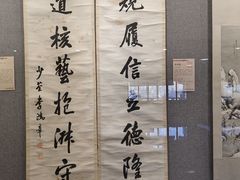 規履信立德隆
道核藝抱淑守
少荃李鴻章